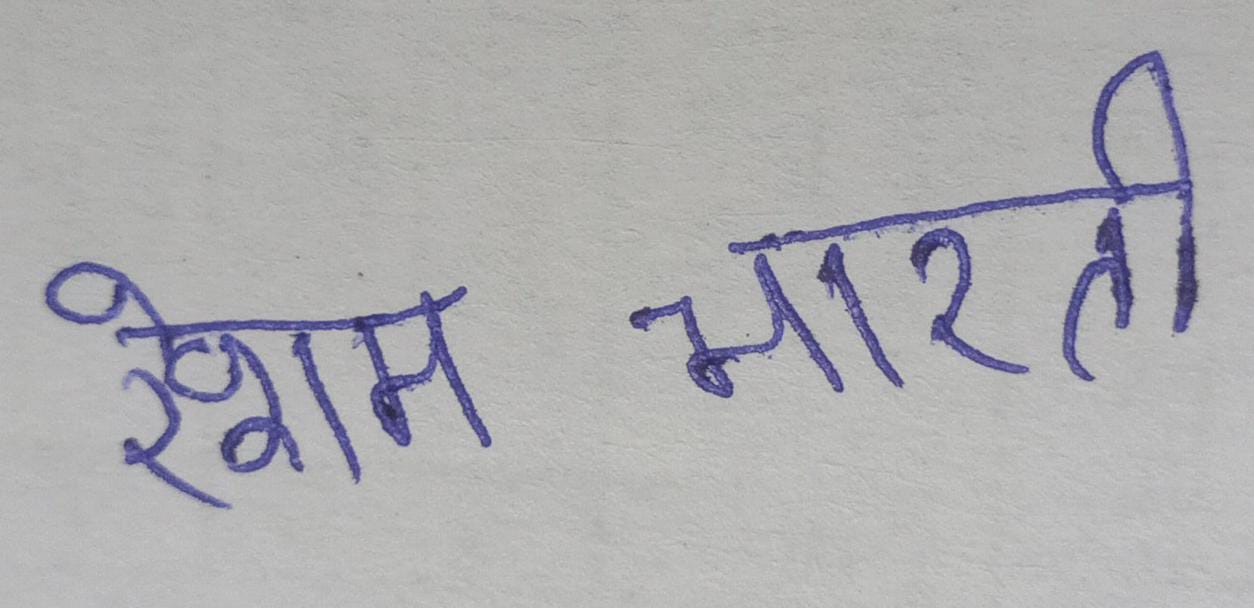 श्याम भारती